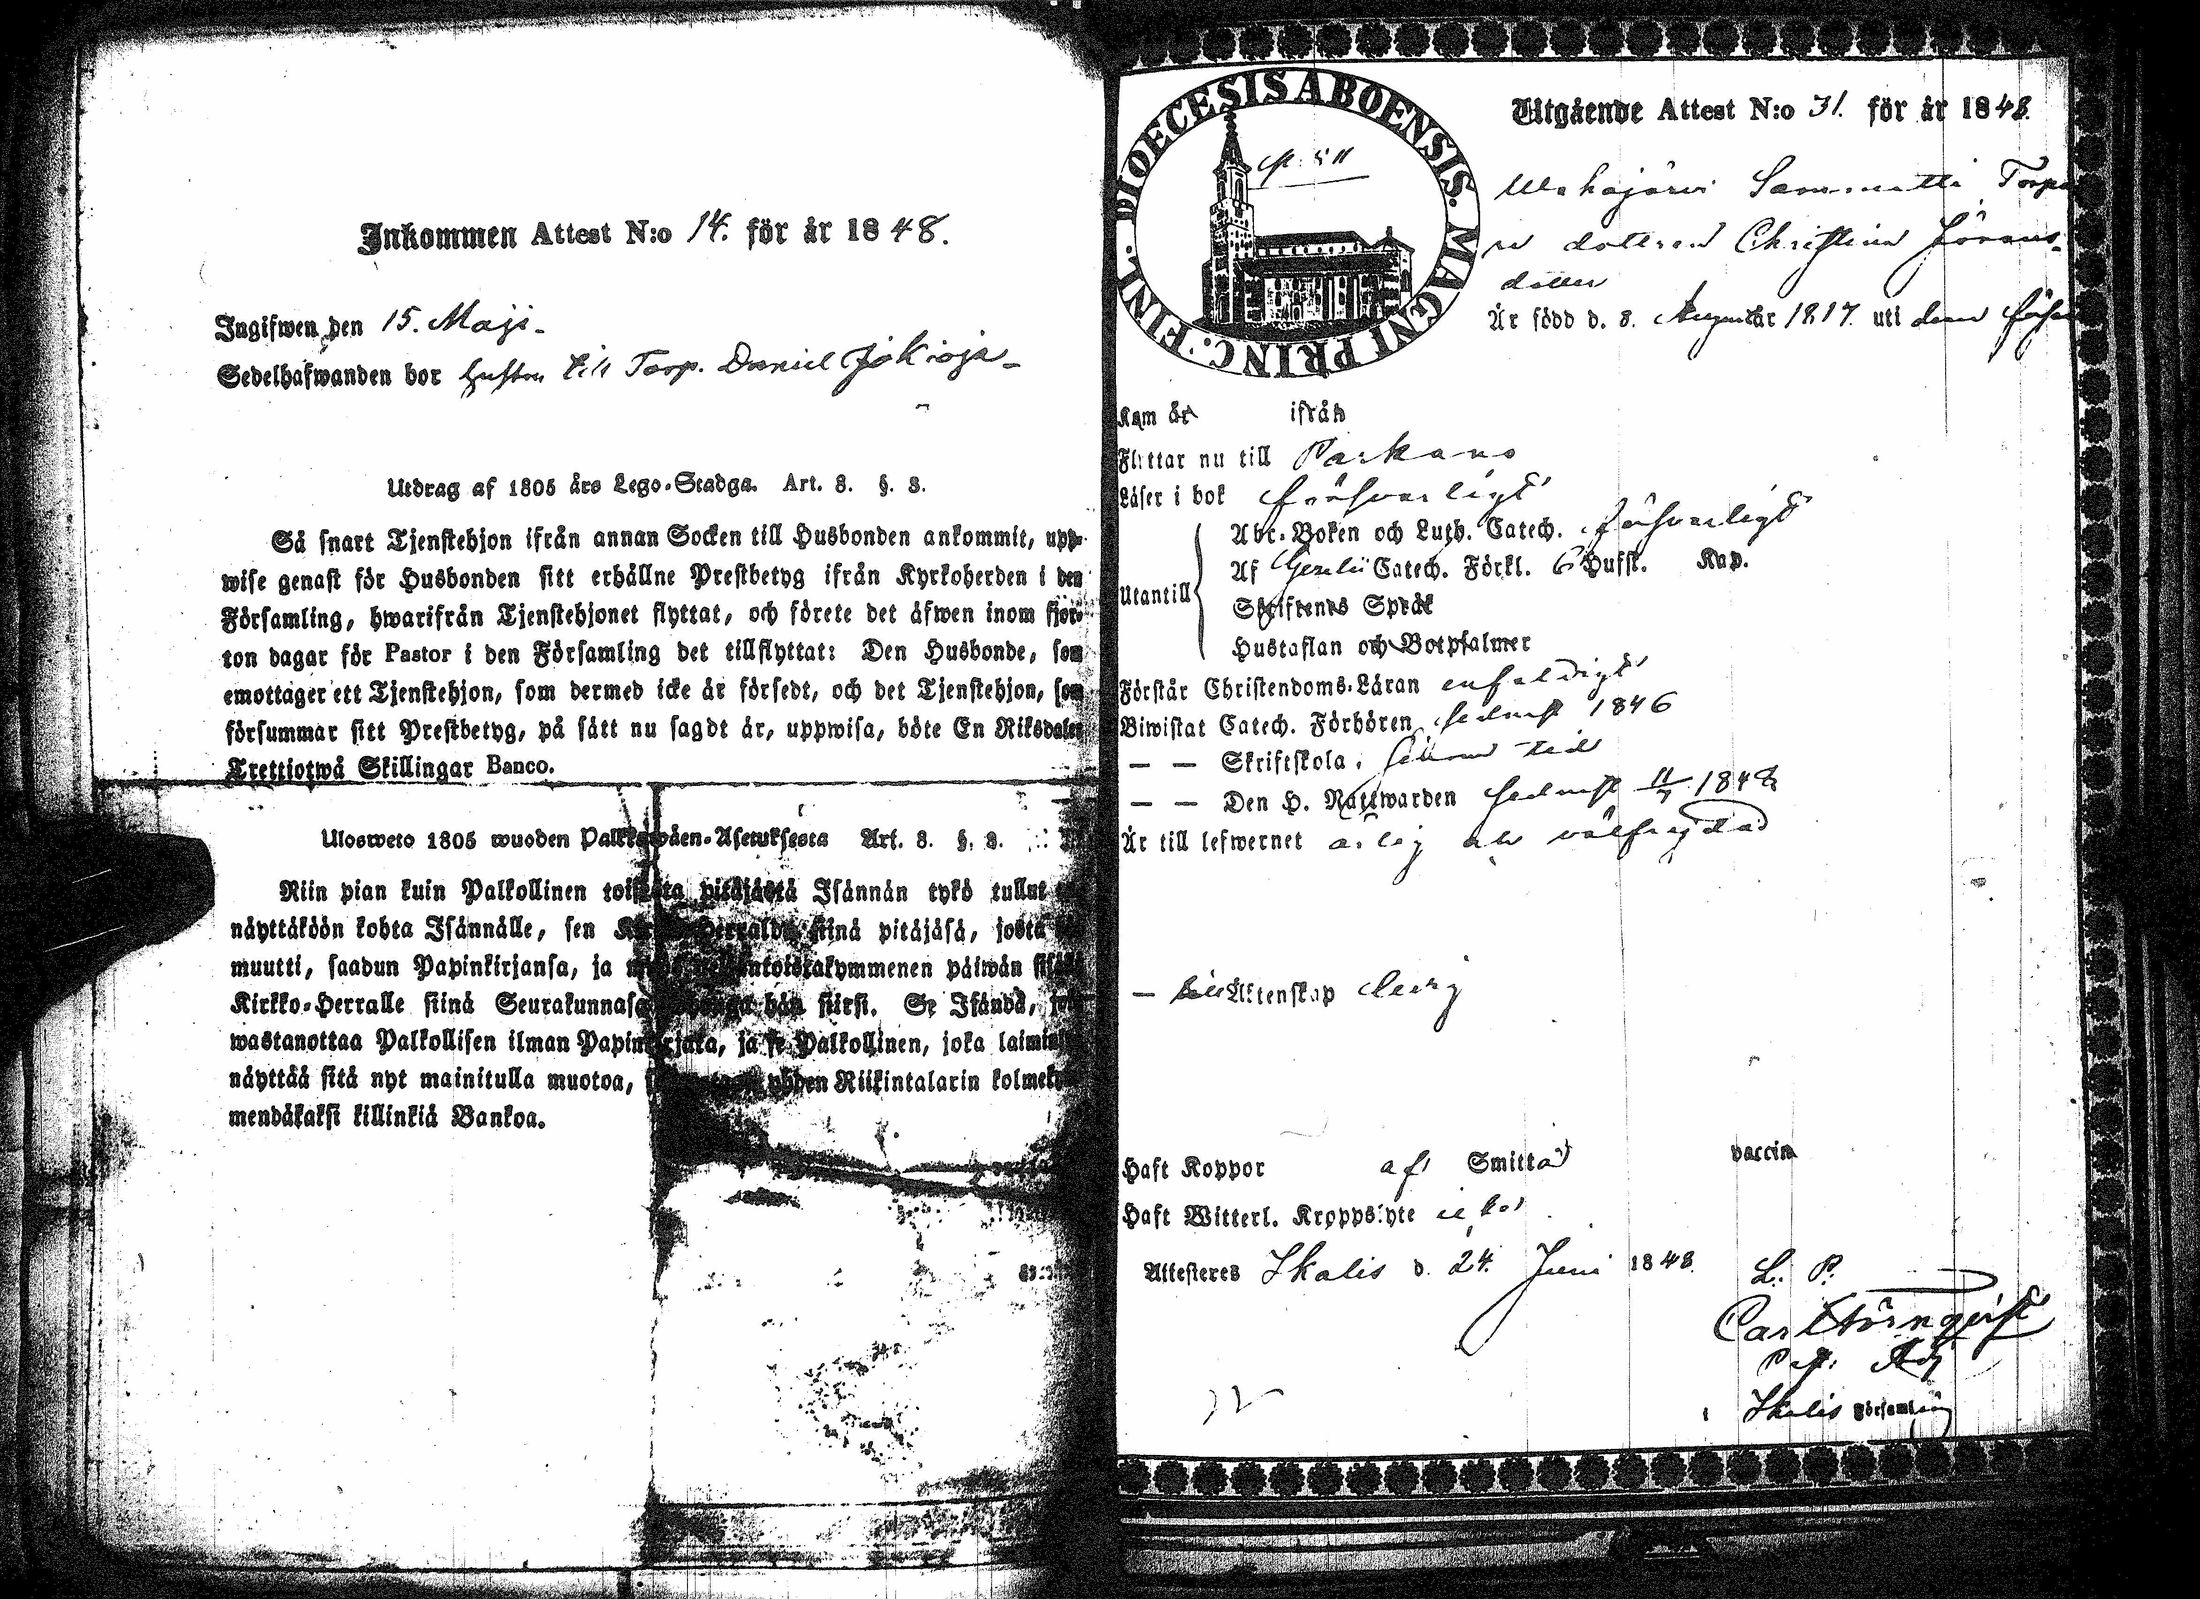 Inkommen Attest N:o 14. för år 1848.
Ingifwen den 15. Maji.
Sedelhafwanden bor hustru till Torp. Daniel Jokioja
Utdrag af 1805 års Lego-Stadga. Art. 8. §. 3.
Så snart Tjenstehjon ifrån annan Socken till Husbonden ankommit, upp-
wise genast för Husbonden sitt erhållne Prestbetyg ifrån Kyrkoherden i den
Församling, hwarifrån Tjenstehjonet flyttat, och förete det äfwen inom fjor-
ton dagar för Pastor i den Församling det tillflyttat: Den Husbonde, som
emottager ett Tjenstehjon, som dermed icke är försedt, och det Tjenstehjon, som
försummar sitt Prestbetyg, på sätt nu sagdt är, uppwisa, böte En Riksdaler
Trettiotwå Skillingar Banco.
Ulosweto 1805 wuoden Palkkawäen-Asetuksesta Art. 8. §. 3.
Niin pian kuin Palkollinen toisesta pitäjästä Isännän tykö tullut
näyttäköön kohta Isännälle, sen Herralda siinä pitäjäsä, josta
muutti, saadun Papinkirjansa, ja päiwän
Kirkko-Herralle siinä Seurakunnasa hän siirsi. Se Isändä,
wastanottaa Palkollisen ilman Papinkirjata, ja se Palkollinen, joka
näyttää sitä nyt mainitulla muotoa, yhden Riikintalarin
mendäkaksi killinkiä Bankoa.
DIOECESIS ABOENSIS. MAGNI PRINC: FINL.
Utgående Attest N:o 31. för år 1848.
Sammatti Torpa
re dottren Christina Jörans-
dotter
Är född d. 8. Augusti år 1817. uti denna försam
Kom år ifrån
Flyttar nu till Parkano
Läser i bok försvarligt
Utantill
Abc-Boken och Luth. Catech. försvarligt
Af Gezelii Catech. Förkl. 6 Hufst. Kap.
Skriftenes Språk
Hustaflan och Botpsalmer
Förstår Christendoms-Läran enfaldigt
Biwistat Catech. Förhören sednast 1846
— — Skriftskola, sin tid
— — Den H. Nattwarden sednast 11/7 1848
Är till lefwernet ärlig och välfrejdad
— till Äktenskap ledig
Haft Koppor af Smitta vaccin
Haft Witterl. Kroppslyte icke
Attesteres Ikalis d. 24. Juni 1848.
L. P.
Carl Törnqvist
Past. Adj
i Ikalis Församling